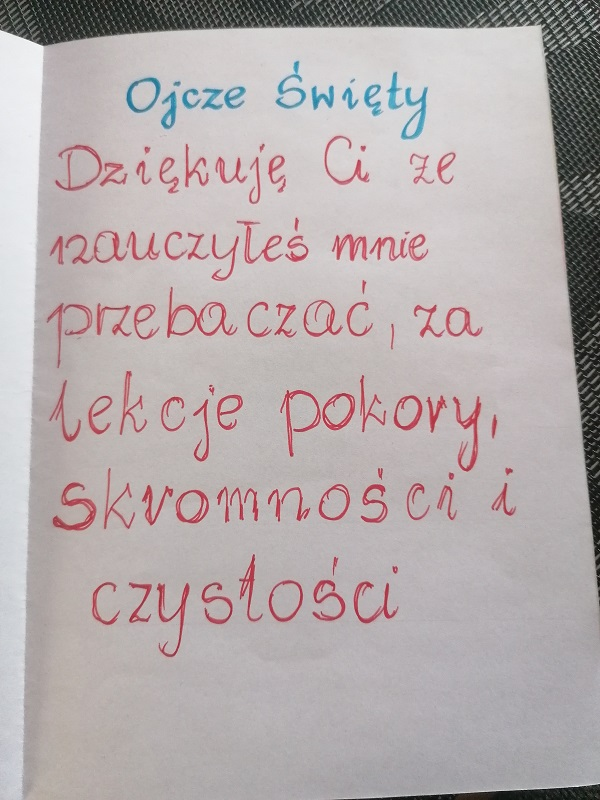 Ojcze Święty
Dziękuję Ci ze
nauczyłeś mnie
przebaczać, za
lekcje pokory,
skromności i
czystości